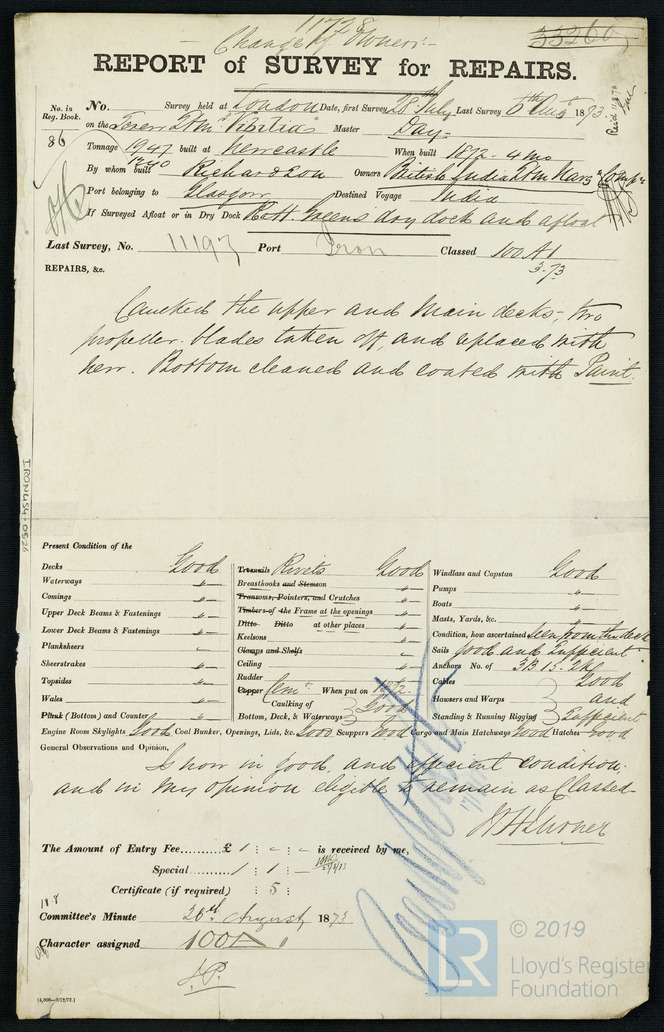 11728
33260
Change of Owners:-
REPORT of SURVEY for REPAIRS.
No. in Reg. Book. 86
No. Survey held at London Date, first Survey 28th July Last Survey 5th Augt 1873
on the Screw Stmr "Vibilia" Master Day-
Tonnage 1947 built at Newcastle When built 1872-4 mo
1240
By whom built Richard & Son Owners British India Stm Navg Compy
Port belonging to Glasgow Destined Voyage India
If Surveyed Afloat or in Dry Dock R & H Greens dry dock and afloat
Last Survey, No. 11197 Port Iron Classed 100 A1
3.73
REPAIRS, &c.
Caulked the upper and Main decks, two
propeller blades taken off, and replaced with
new. Bottom cleaned and coated with Paint.
IRON454-0526
Present Condition of the
Decks Good
Waterways "
Comings "
Upper Deck Beams & Fastenings "
Lower Deck Beams & Fastenings "
Planksheers
Sheerstrakes "
Topsides "
Wales "
Plank (Bottom) and Counter "
Treenails Rivets Good
Breasthooks and Stemson "
Transoms, Pointers, and Crutches "
Timbers of the Frame at the openings "
Ditto Ditto at other places "
Keelsons "
Clamps and Shelfs
Ceiling "
Rudder "
Copper Cemt When put on 1872
Caulking of Bottom, Deck, & Waterways Good
Windlass and Capstan Good
Pumps "
Boats "
Masts, Yards, &c. "
Condition, how ascertained Seen from the deck
Sails Good and Sufficient
Anchors No. of 3B 1S. 2K
Cables Good
Hawsers and Warps and
Standing & Running Rigging Sufficient
Engine Room Skylights Good Coal Bunker, Openings, Lids, &c. Good Scuppers Good Cargo and Main Hatchways Good Hatches Good
General Observations and Opinion,
Is now in good and efficient condition,
and in my opinion eligible to remain as Classed
The Amount of Entry Fee......... £ 1 : - : - is received by me,
Special ......... 1 : 1 : -
Certificate (if required) : 5 :
18-8
Committee's Minute 26th August 1873
Character assigned 100A1
[4,000—9/12/72.]
LR
© 2019
Lloyd's Register
Foundation